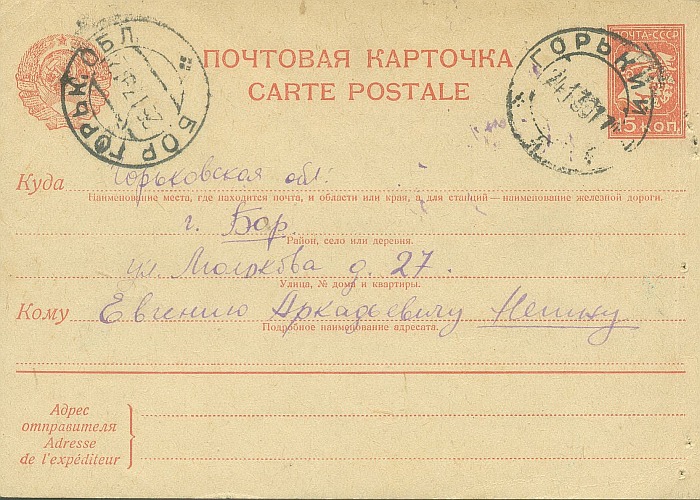 ПОЧТОВАЯ КАРТОЧКА
CARTE POSTALE
БОР ГОРЬК. ОБЛ.
ГОРЬКИЙ
ПОЧТА-СССР
15 КОП.
Куда Горьковская обл.
Наименование места, где находится почта, и области или края, а для станций—наименование железной дороги.
г. Бор.
Район, село или деревня.
ул. д. 27.
Улица, № дома и квартиры.
Кому Евгению Аркадьевичу
Подробное наименование адресата.
Адрес
отправителя
Adresse
de l'expéditeur